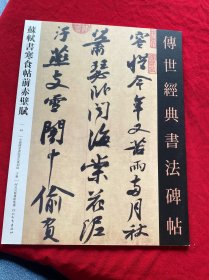 傳世經典書法碑帖
容惜今年又苦雨兩月秋
蕭瑟卧聞海棠花泥
汙燕支雪闇中偷負
蘇軾書寒食帖前赤壁賦